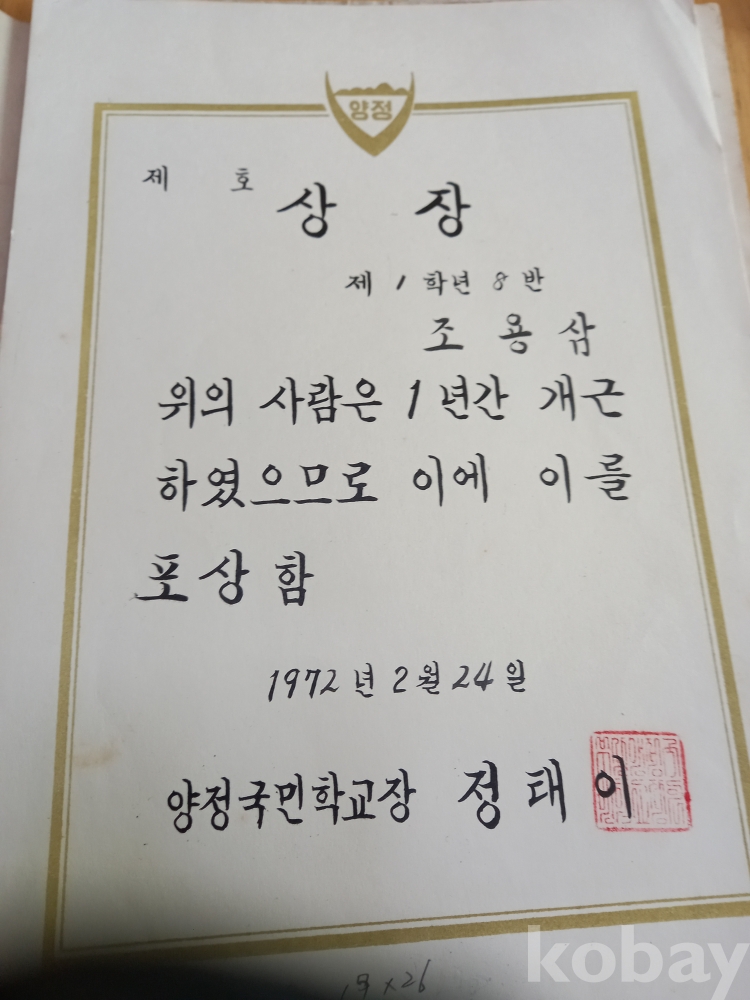 양정
제 호
상 장
제 1 학년 8 반
조 용 삼
위의 사람은 1 년간 개근
하였으므로 이에 이를
포상함
1972 년 2 월 24 일
양정국민학교장 정 태 이
19 x 26
kobay